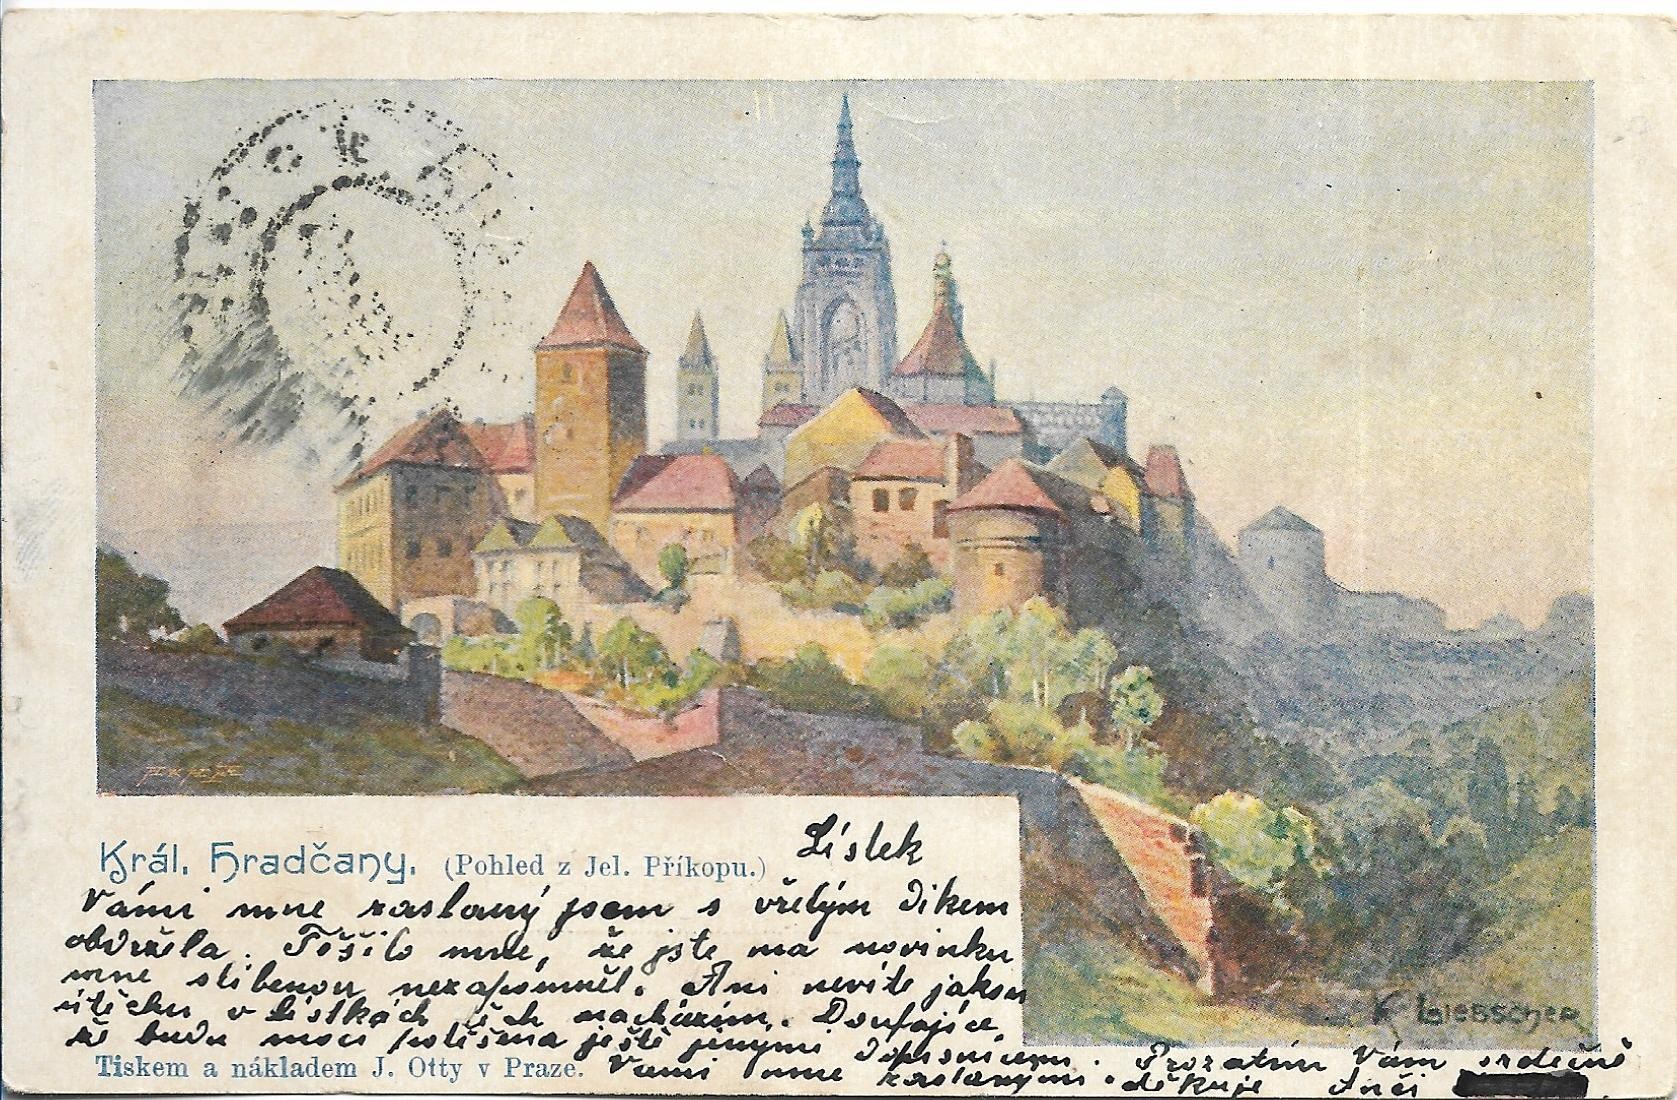 Král. Hradčany. (Pohled z Jel. Příkopu.) Lístek
Vámi mne zaslaný jsem s vřelým díkem
obdržela. Těšilo mne, že jste na novinku
mne slíbenou nezapomněl. Ani nevíte jakou
útěchu v lístkách těch nacházím. Doufajíce
že budu moci potěšena ještě jinými dopisnicemi
Tiskem a nákladem J. Otty v Praze. Vámi mne zaslanými. Prozatím Vám srdečně
děkuje Anči
K Liebscher